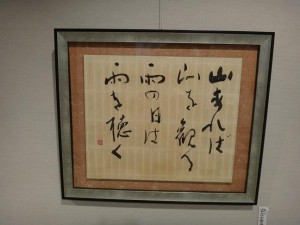 山あれば
山を観る
雨の日は
雨を聴く